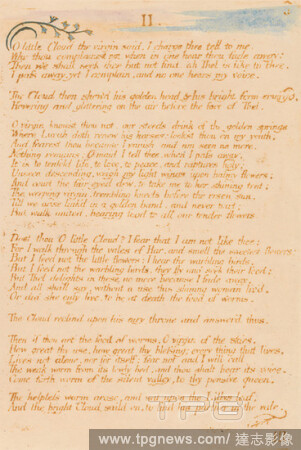 II.
O little Cloud the virgin said, I charge thee tell to me,
Why thou complainest not when in one hour thou fade away:
Then we shall seek thee but not find; ah Thel is like to Thee.
I pass away, yet I complain, and no one hears my voice.
The Cloud then shew'd his golden head & his bright form emerg'd,
Hovering and glittering on the air before the face of Thel.
O virgin know'st thou not our steeds drink of the golden springs
Where Luvah doth renew his horses: look'st thou on my youth,
And fearest thou because I vanish and am seen no more.
Nothing remains; O maid I tell thee, when I pass away,
It is to tenfold life, to love, to peace, and raptures holy:
Unseen descending, weigh my light wings upon balmy flowers;
And court the fair eyed dew, to take me to her shining tent;
The weeping virgin, trembling kneels before the risen sun,
Till we arise link'd in a golden band, and never part;
But walk united, bearing food to all our tender flowers
Dost thou O little Cloud? I fear that I am not like thee;
For I walk through the vales of Har, and smell the sweetest flowers
But I feed not the little flowers: I hear the warbling birds,
But I feed not the warbling birds, they fly and seek their food;
But Thel delights in these no more because I fade away,
And all shall say, without a use this shining woman liv'd,
Or did she only live, to be at death the food of worms.
The Cloud reclind upon his airy throne and answer'd thus.
Then if thou art the food of worms, O virgin of the skies,
How great thy use, how great thy blessing; every thing that lives,
Lives not alone, nor for itself: fear not and I will call
The weak worm from its lowly bed, and thou shalt hear its voice.
Come forth worm of the silent valley, to thy pensive queen.
The helpless worm arose, and sat upon the Lillys leaf,
And the bright Cloud saild on, to find his partner in the vale.
www.tpgnews.com / 達志影像